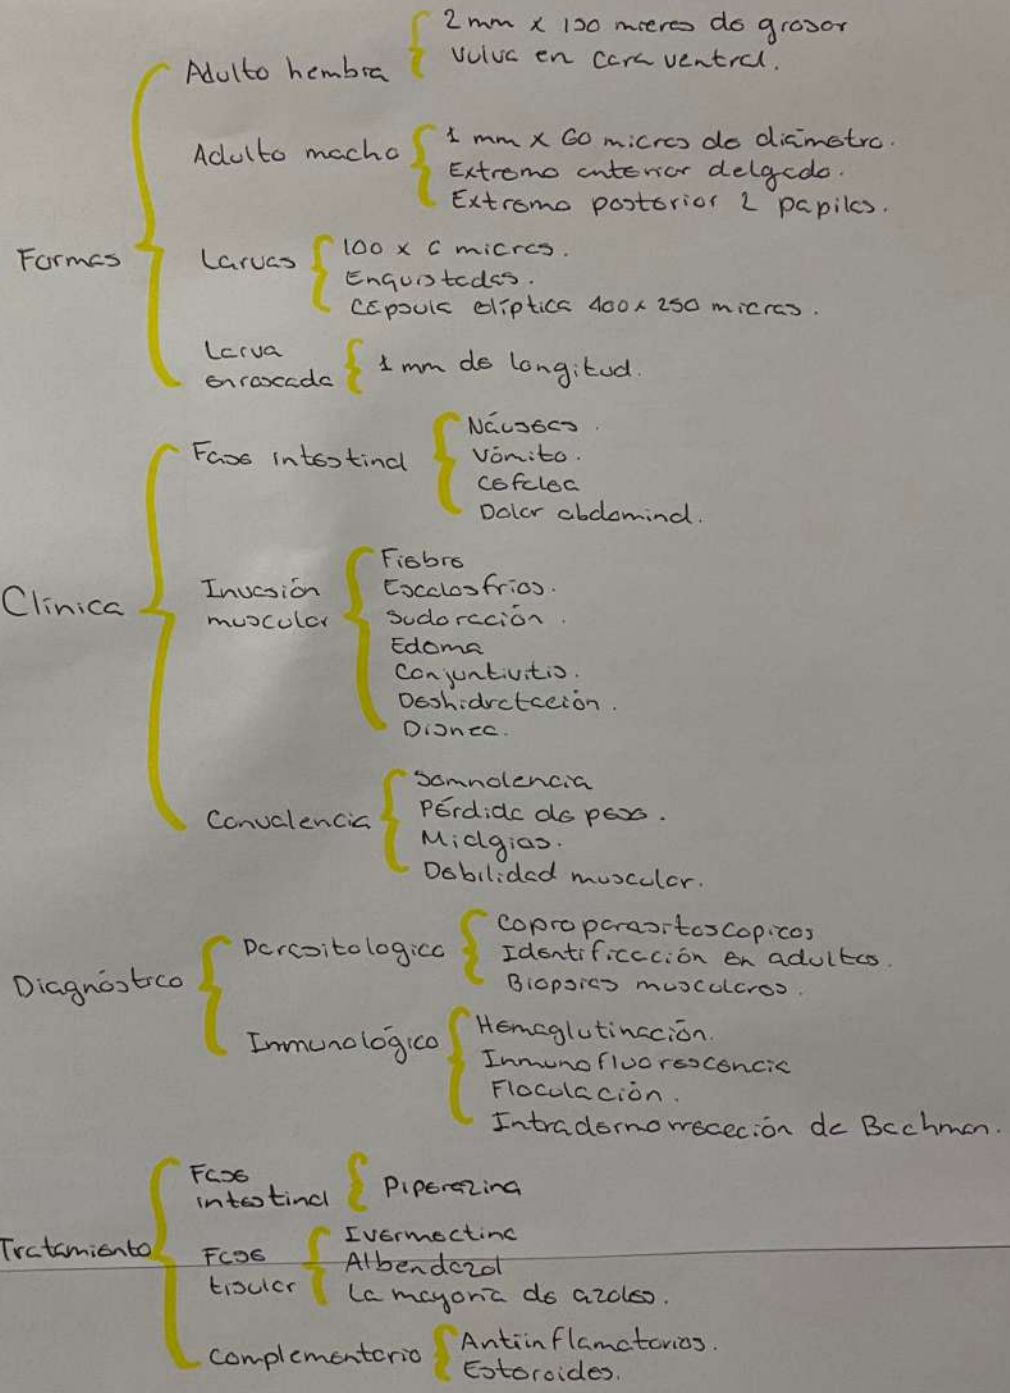 Formas
Adulto hembra
2 mm x 130 micras de grosor
Vulva en cara ventral.
Adulto macho
1 mm x 60 micras de diámetro.
Extremo anterior delgado.
Extremo posterior 2 papilas.
Larvas
100 x 6 micras.
Enquistadas.
Cápsula elíptica 400 x 250 micras.
Larva
enroscada
1 mm de longitud.
Clínica
Fase intestinal
Náuseas.
Vómito.
Cefalea
Dolor abdominal.
Invasión
muscular
Fiebre
Escalosfríos.
Sudoración.
Edema
Conjuntivitis.
Deshidratación.
Disnea.
Convalencia
Somnolencia
Pérdida de peso.
Mialgias.
Debilidad muscular.
Diagnóstico
Parasitologico
Coproparasitoscopicos
Identificación en adultos.
Biopsias musculares.
Inmunológico
Hemaglutinación.
Inmunofluorescencia
Floculación.
Intradermorreacción de Bachman.
Tratamiento
Fase
intestinal
Piperazina
Fase
tisular
Ivermectina
Albendazol
La mayoría de azoles.
Complementario
Antiinflamatorios.
Esteroides.